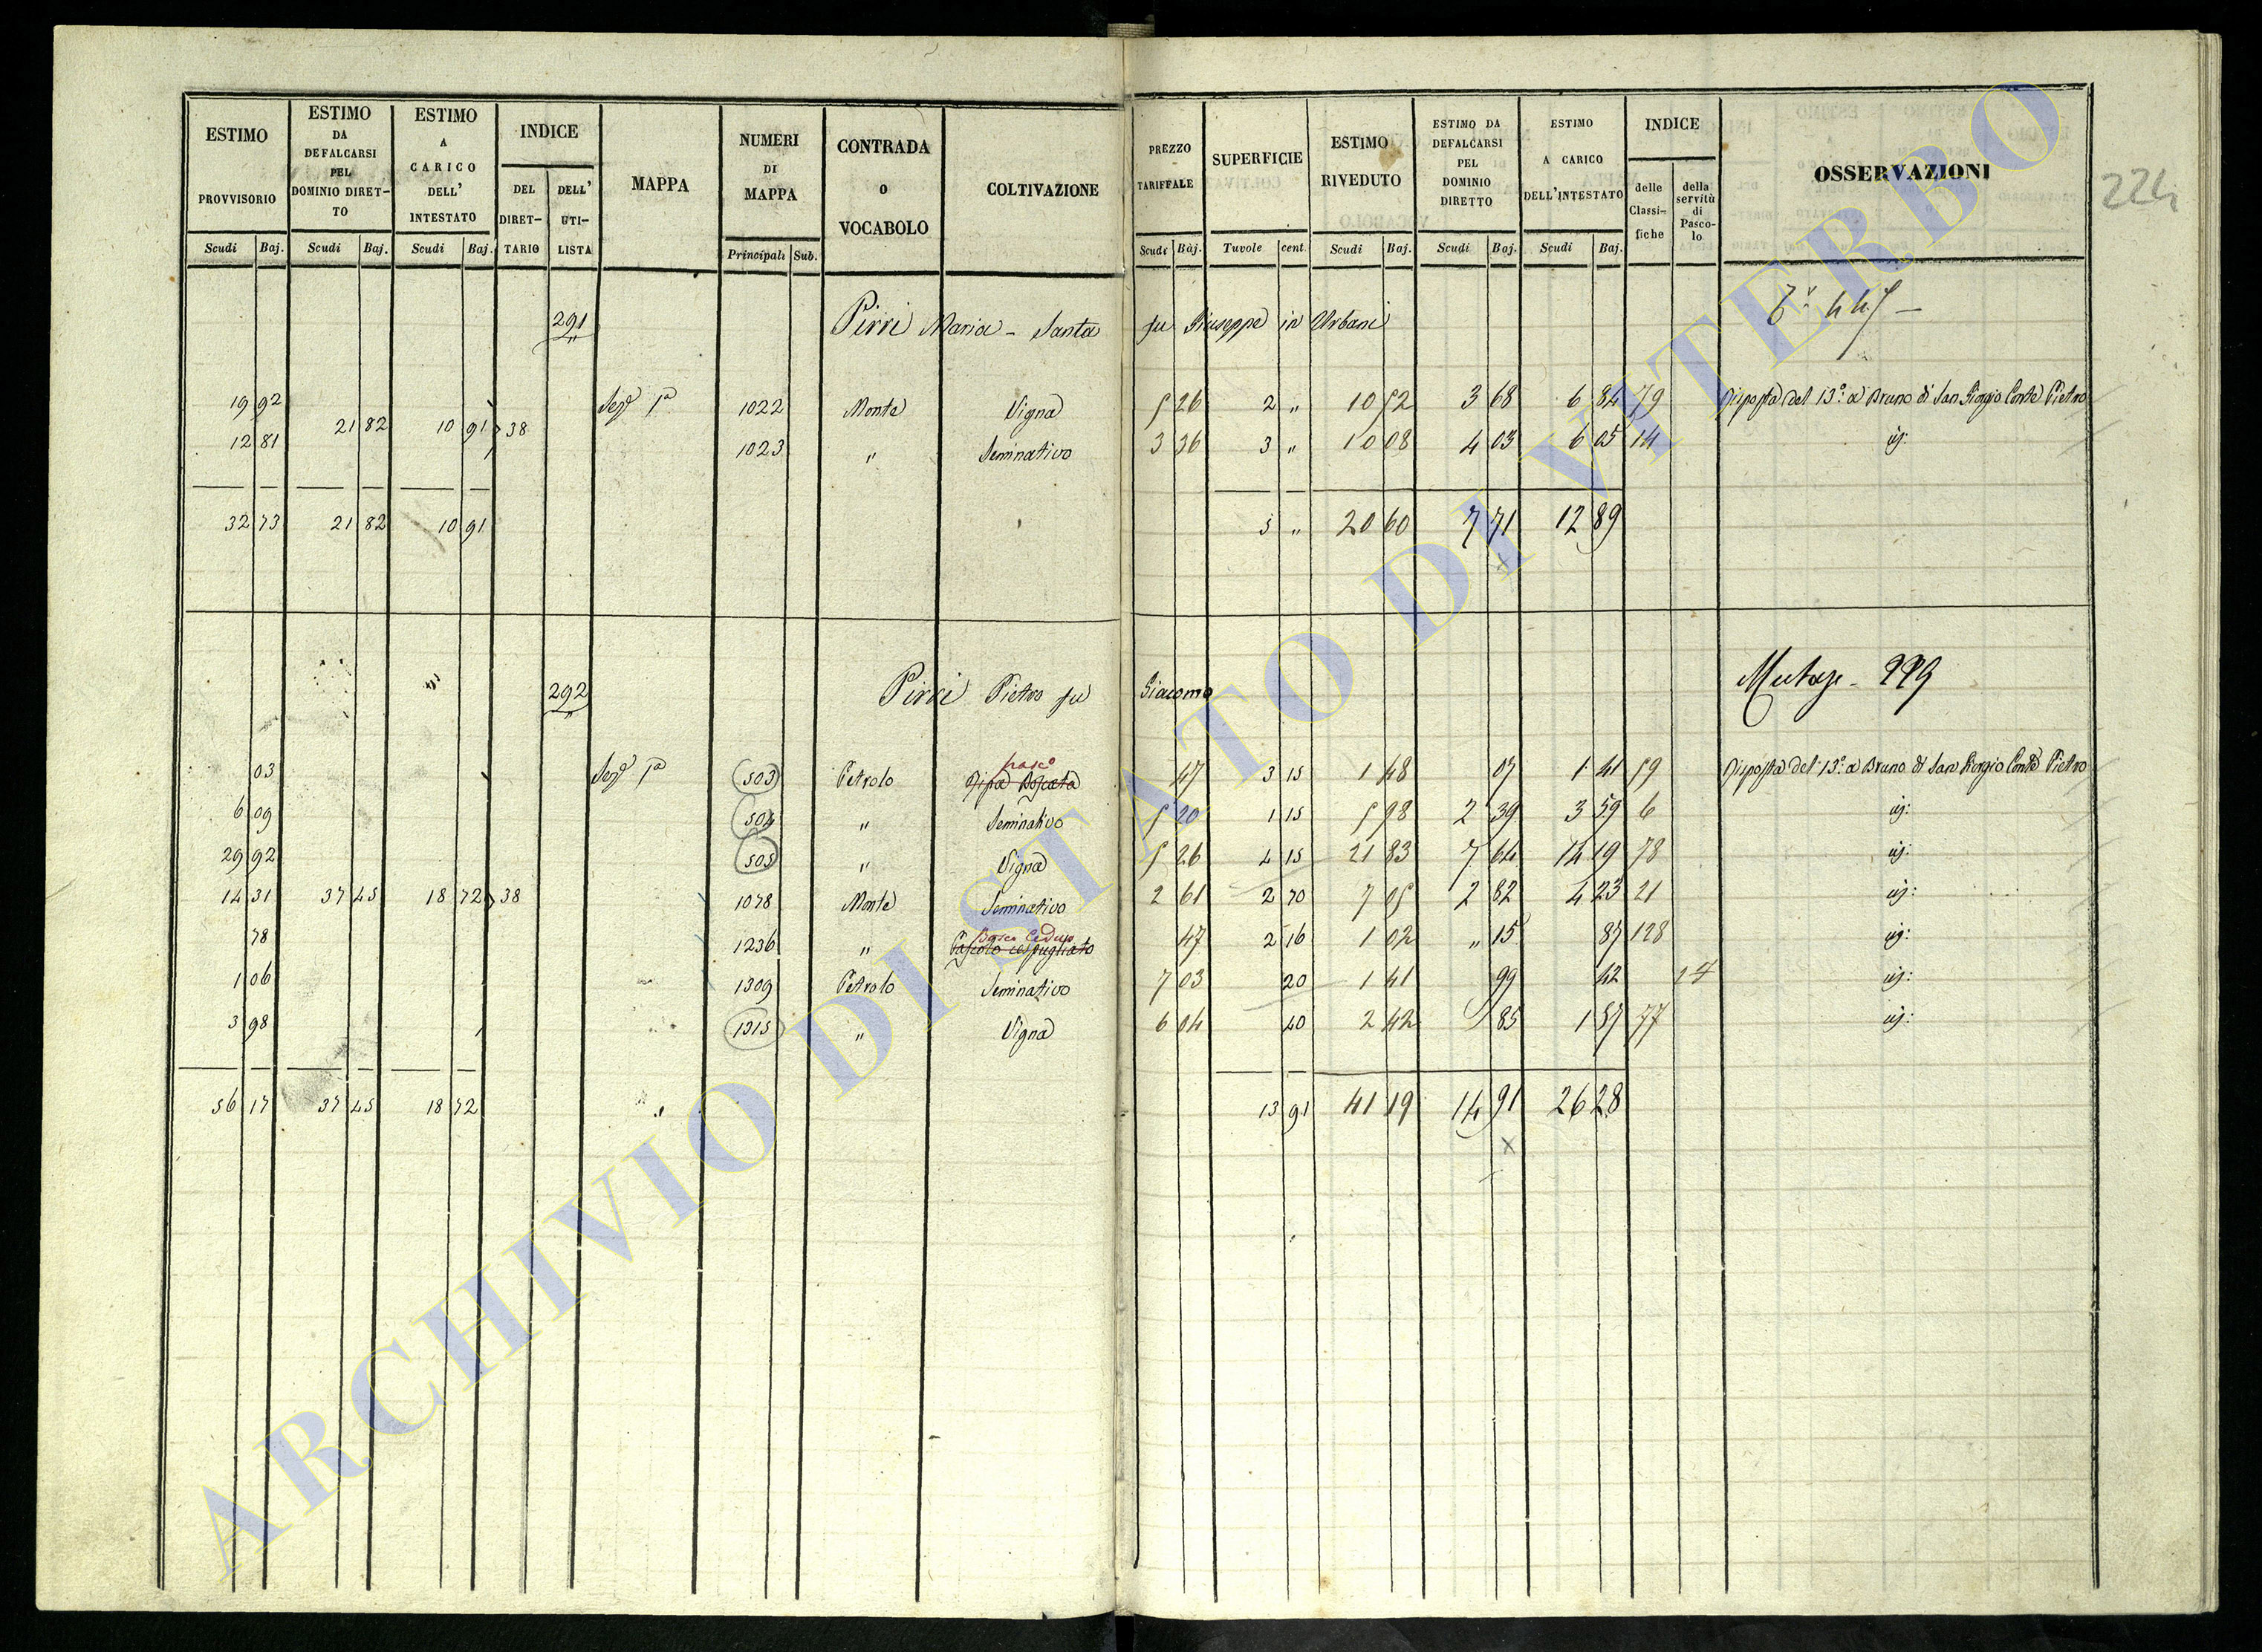 ESTIMO PROVVISORIO Scudi Baj. | ESTIMO DA DEFALCARSI PEL DOMINIO DIRETTO Scudi Baj. | ESTIMO A CARICO DELL' INTESTATO Scudi Baj. | INDICE DEL DIRETTARIO DELL' UTILISTA | MAPPA | NUMERI DI MAPPA Principali Sub. | CONTRADA O VOCABOLO | COLTIVAZIONE | PREZZO TARIFFALE Scudi Baj. | SUPERFICIE Tavole cent. | ESTIMO RIVEDUTO Scudi Baj. | ESTIMO DA DEFALCARSI PEL DOMINIO DIRETTO Scudi Baj. | ESTIMO A CARICO DELL'INTESTATO Scudi Baj. | INDICE delle Classifiche della servitù di Pascolo | OSSERVAZIONI
224
291 Pirri Maria - Santa fu Giuseppe in Urbani
19 92 Sez.e 1a 1022 Monte Vigna 5 26 2 " 10 52 3 68 6 84 79 Risposta del 13.o a Bruno di San Giorgio Conte Pietro
21 82 10 91 38
12 81 1023 " Seminativo 3 36 3 " 10 08 4 03 6 05 14 id:
32 73 21 82 10 91 5 " 20 60 7 71 12 89
x
292 Pirri Pietro fu Giacomo 229
03 Sez.e 1a 503 Petrolo Ripa Boscata pasco 47 3 15 1 48 07 1 41 59 Risposta del 13.o a Bruno di San Giorgio Conte Pietro
6 09 504 " Seminativo 5 20 1 15 5 98 2 39 3 59 6 id:
29 92 505 " Vigna 5 26 4 15 21 83 7 64 14 19 78 id:
14 31 37 45 18 72 38 1078 Monte Seminativo 2 61 2 70 7 05 2 82 4 23 21 id:
78 1236 " Pascolo cespugliato Bosco Ceduo 47 2 16 1 02 " 15 87 128 id:
1 06 1309 Petrolo Seminativo 7 03 20 1 41 99 42 id:
3 98 1315 " Vigna 6 04 40 2 42 85 1 57 77 id:
56 17 37 45 18 72 13 91 41 19 14 91 26 28
x
ARCHIVIO DI STATO DI VITERBO